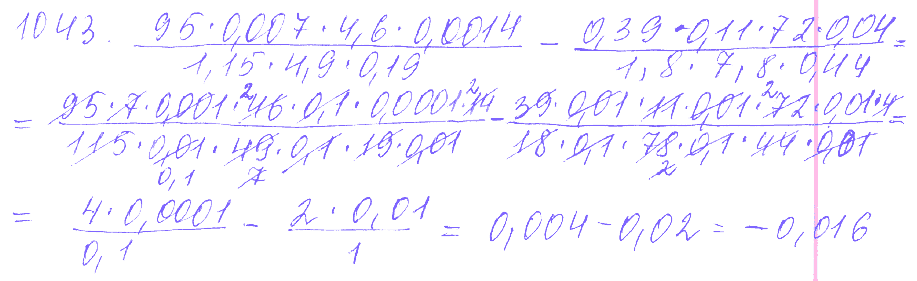 1043. (95·0,007·4,6·0,0014)/(1,15·4,9·0,19) - (0,39·0,11·72·0,04)/(1,8·7,8·0,44) =
= (95·7·0,001·²46·0,1·0,0001·²14)/(115·0,01·49·0,1·19·0,01) - (39·0,01·11·0,01·²72·0,01·4)/(18·0,1·78·0,1·44·0,01) =
0,1 7 2
= (4·0,0001)/(0,1) - (2·0,01)/1 = 0,004-0,02=-0,016